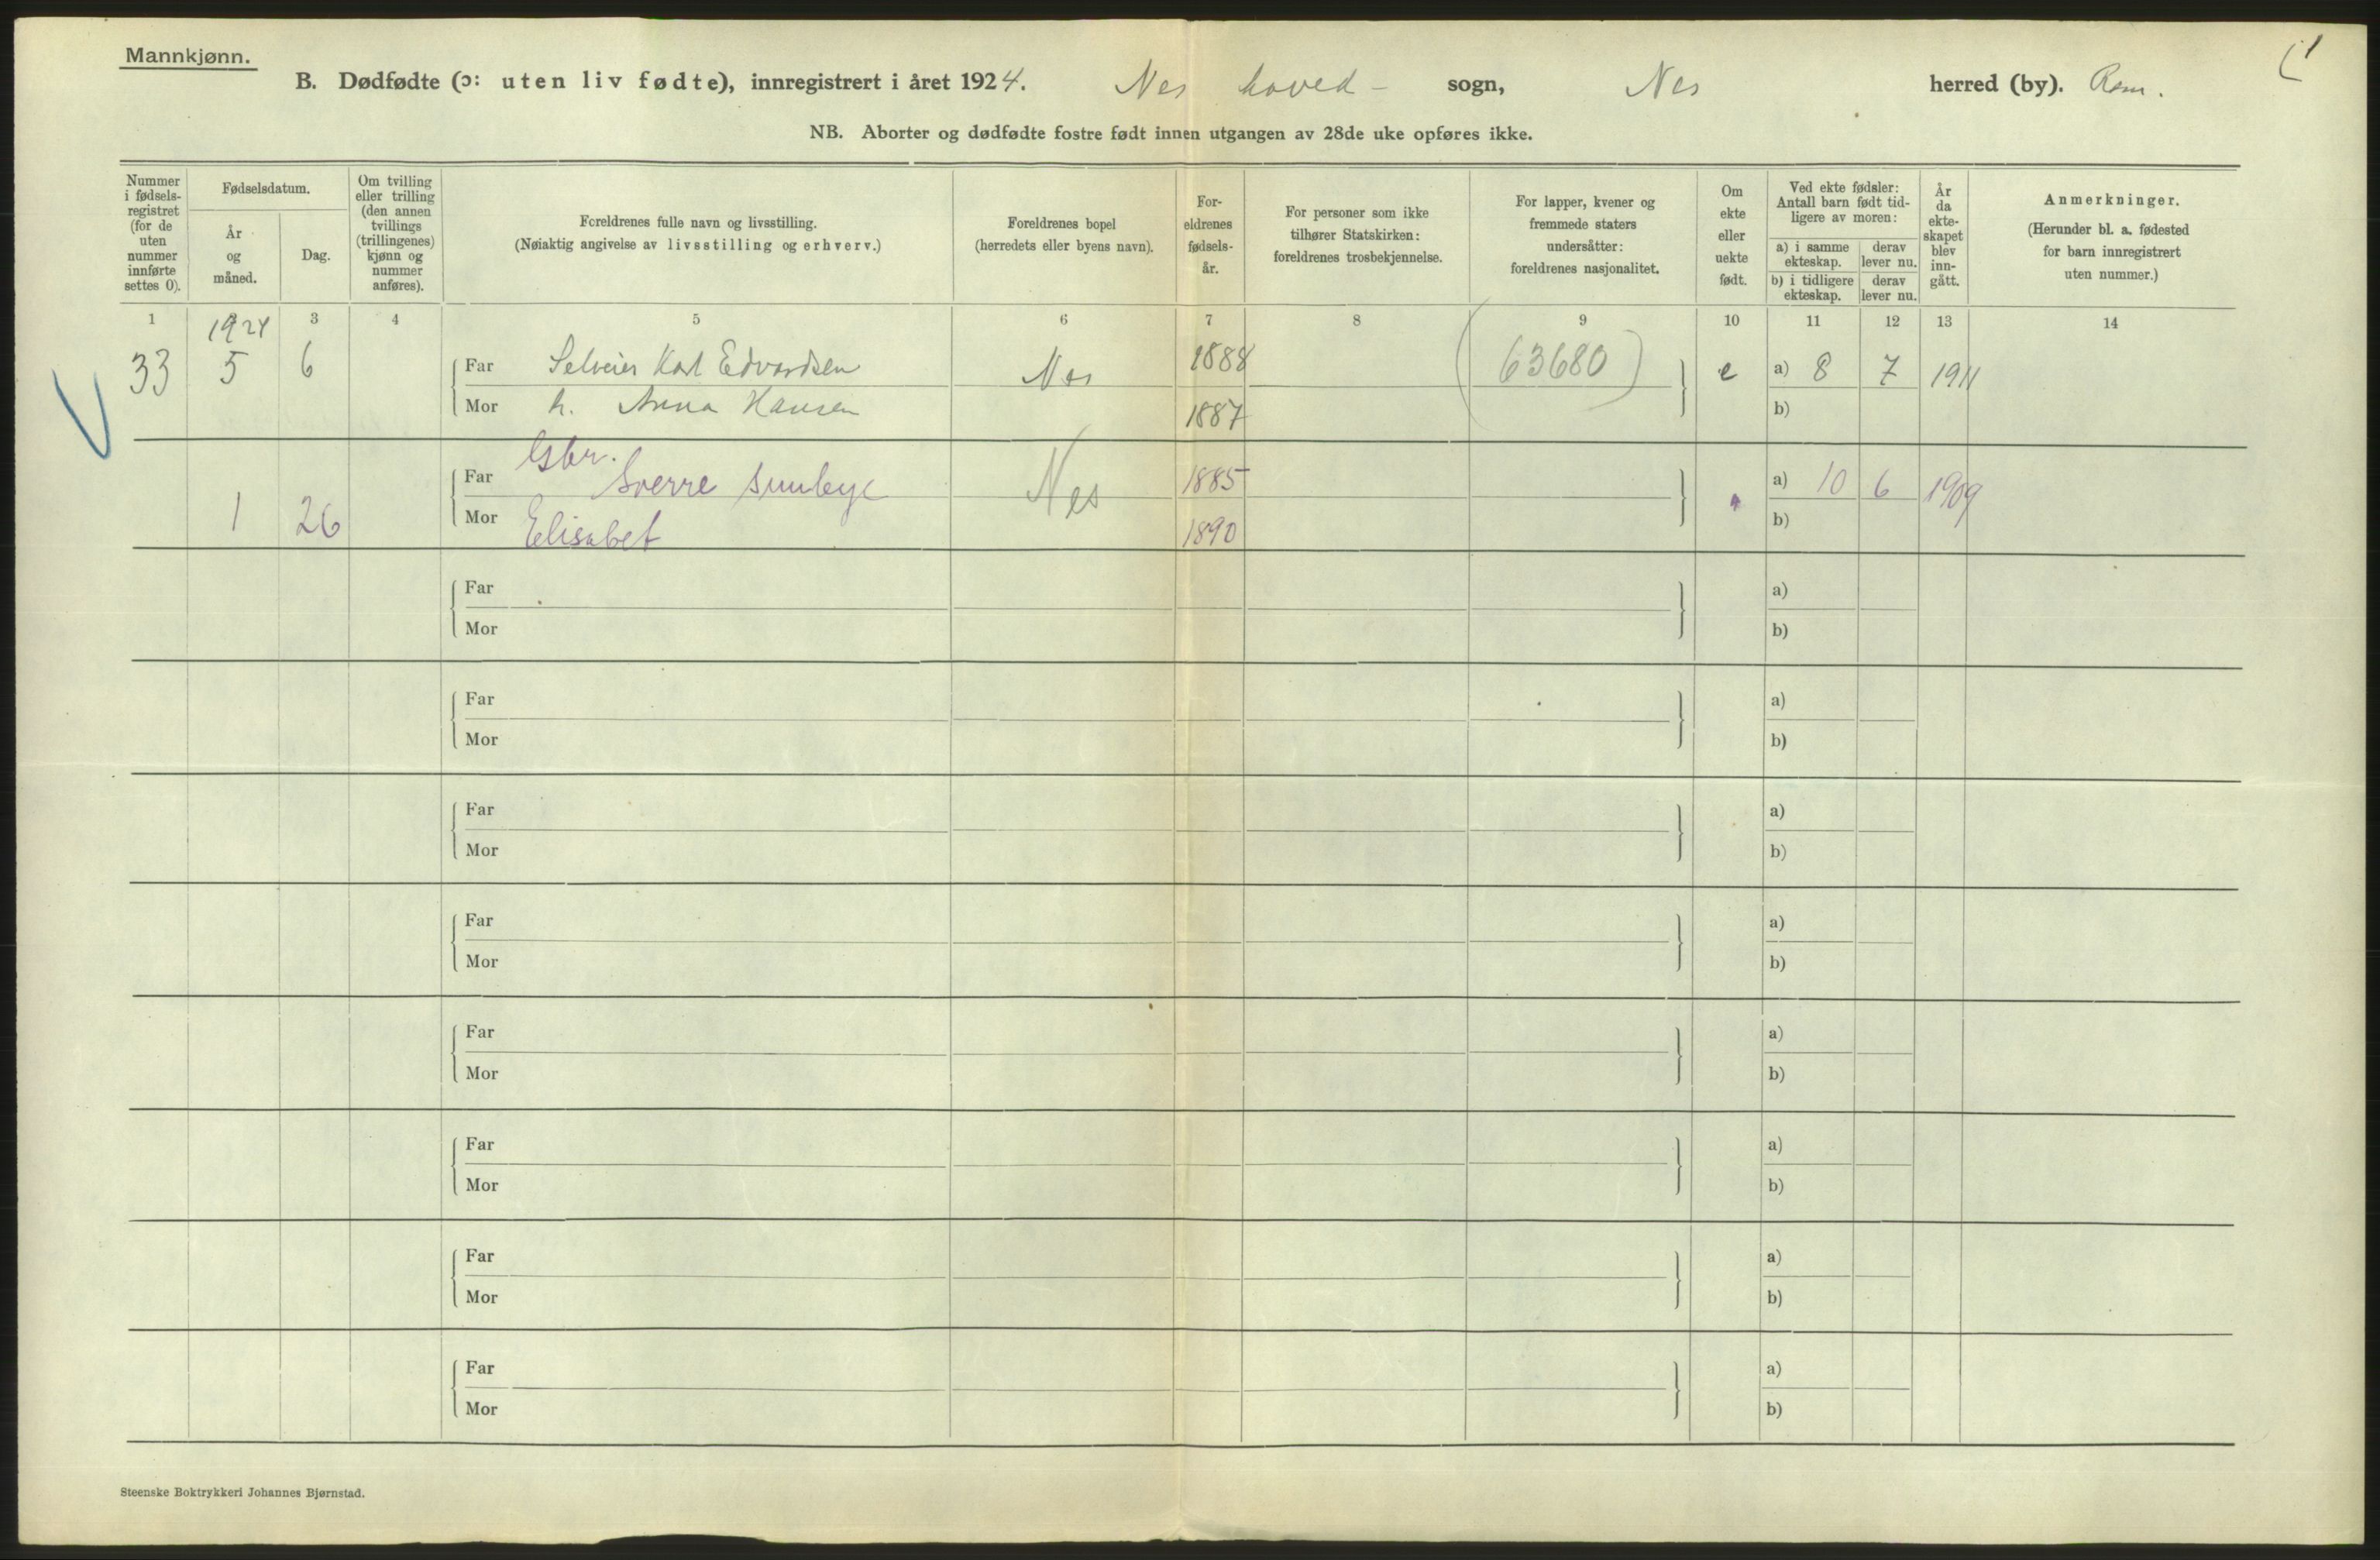 Mannkjønn.
B. Dødfødte (ɔ: uten liv fødte), innregistrert i året 1924. Nes hoved- sogn, Nes herred (by). Rom.
NB. Aborter og dødfødte fostre født innen utgangen av 28de uke opføres ikke.
Nummer i fødsels-registret (for de uten nummer innførte settes 0).
Fødselsdatum.
År og måned.
Dag.
Om tvilling eller trilling (den annen tvillings (trillingenes) kjønn og nummer anføres).
Foreldrenes fulle navn og livsstilling.
(Nøiaktig angivelse av livsstilling og erhverv.)
Foreldrenes bopel
(herredets eller byens navn).
For-eldrenes fødsels-år.
For personer som ikke tilhører Statskirken: foreldrenes trosbekjennelse.
For lapper, kvener og fremmede staters undersåtter: foreldrenes nasjonalitet.
Om ekte eller uekte født.
Ved ekte fødsler: Antall barn født tid-ligere av moren:
a) i samme ekteskap.
derav lever nu.
b) i tidligere ekteskap.
derav lever nu.
År da ekte-skapet blev inn-gått.
Anmerkninger.
(Herunder bl. a. fødested for barn innregistrert uten nummer.)
1 3 4 5 6 7 8 9 10 11 12 13 14
1924
33 5 6 Far Selveier Karl Edvardsen Nes 1888 (63680) e a) 8 7 1911
Mor h. Anna Hansen 1887 b)
Gbr.
Far Sverre Sunbye Nes 1885 a) 10 6 1909
1 26 Mor Elisabet 1890 b)
Far a)
Mor b)
Far a)
Mor b)
Far a)
Mor b)
Far a)
Mor b)
Far a)
Mor b)
Far a)
Mor b)
Far a)
Mor b)
Far a)
Mor b)
Steenske Boktrykkeri Johannes Bjørnstad.